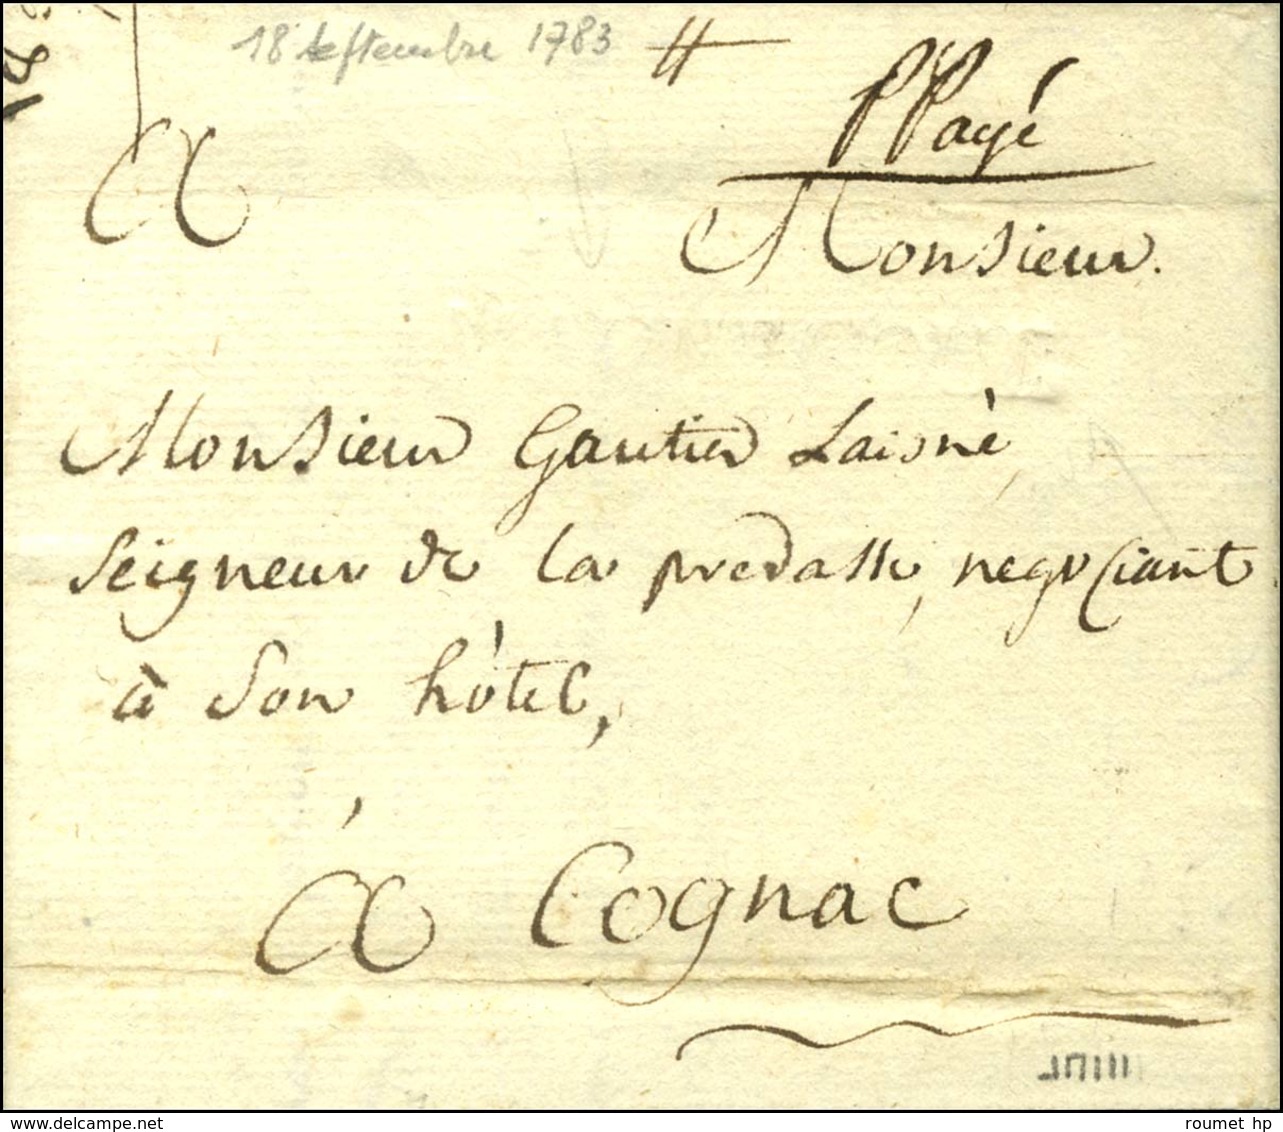 18 septembre 1783
PPayé
A Monsieur.
Monsieur Gautier Laisné,
Seigneur de la predasse, negociant
à Son hôtel,
À Cognac
www.delcampe.net
roumet hp